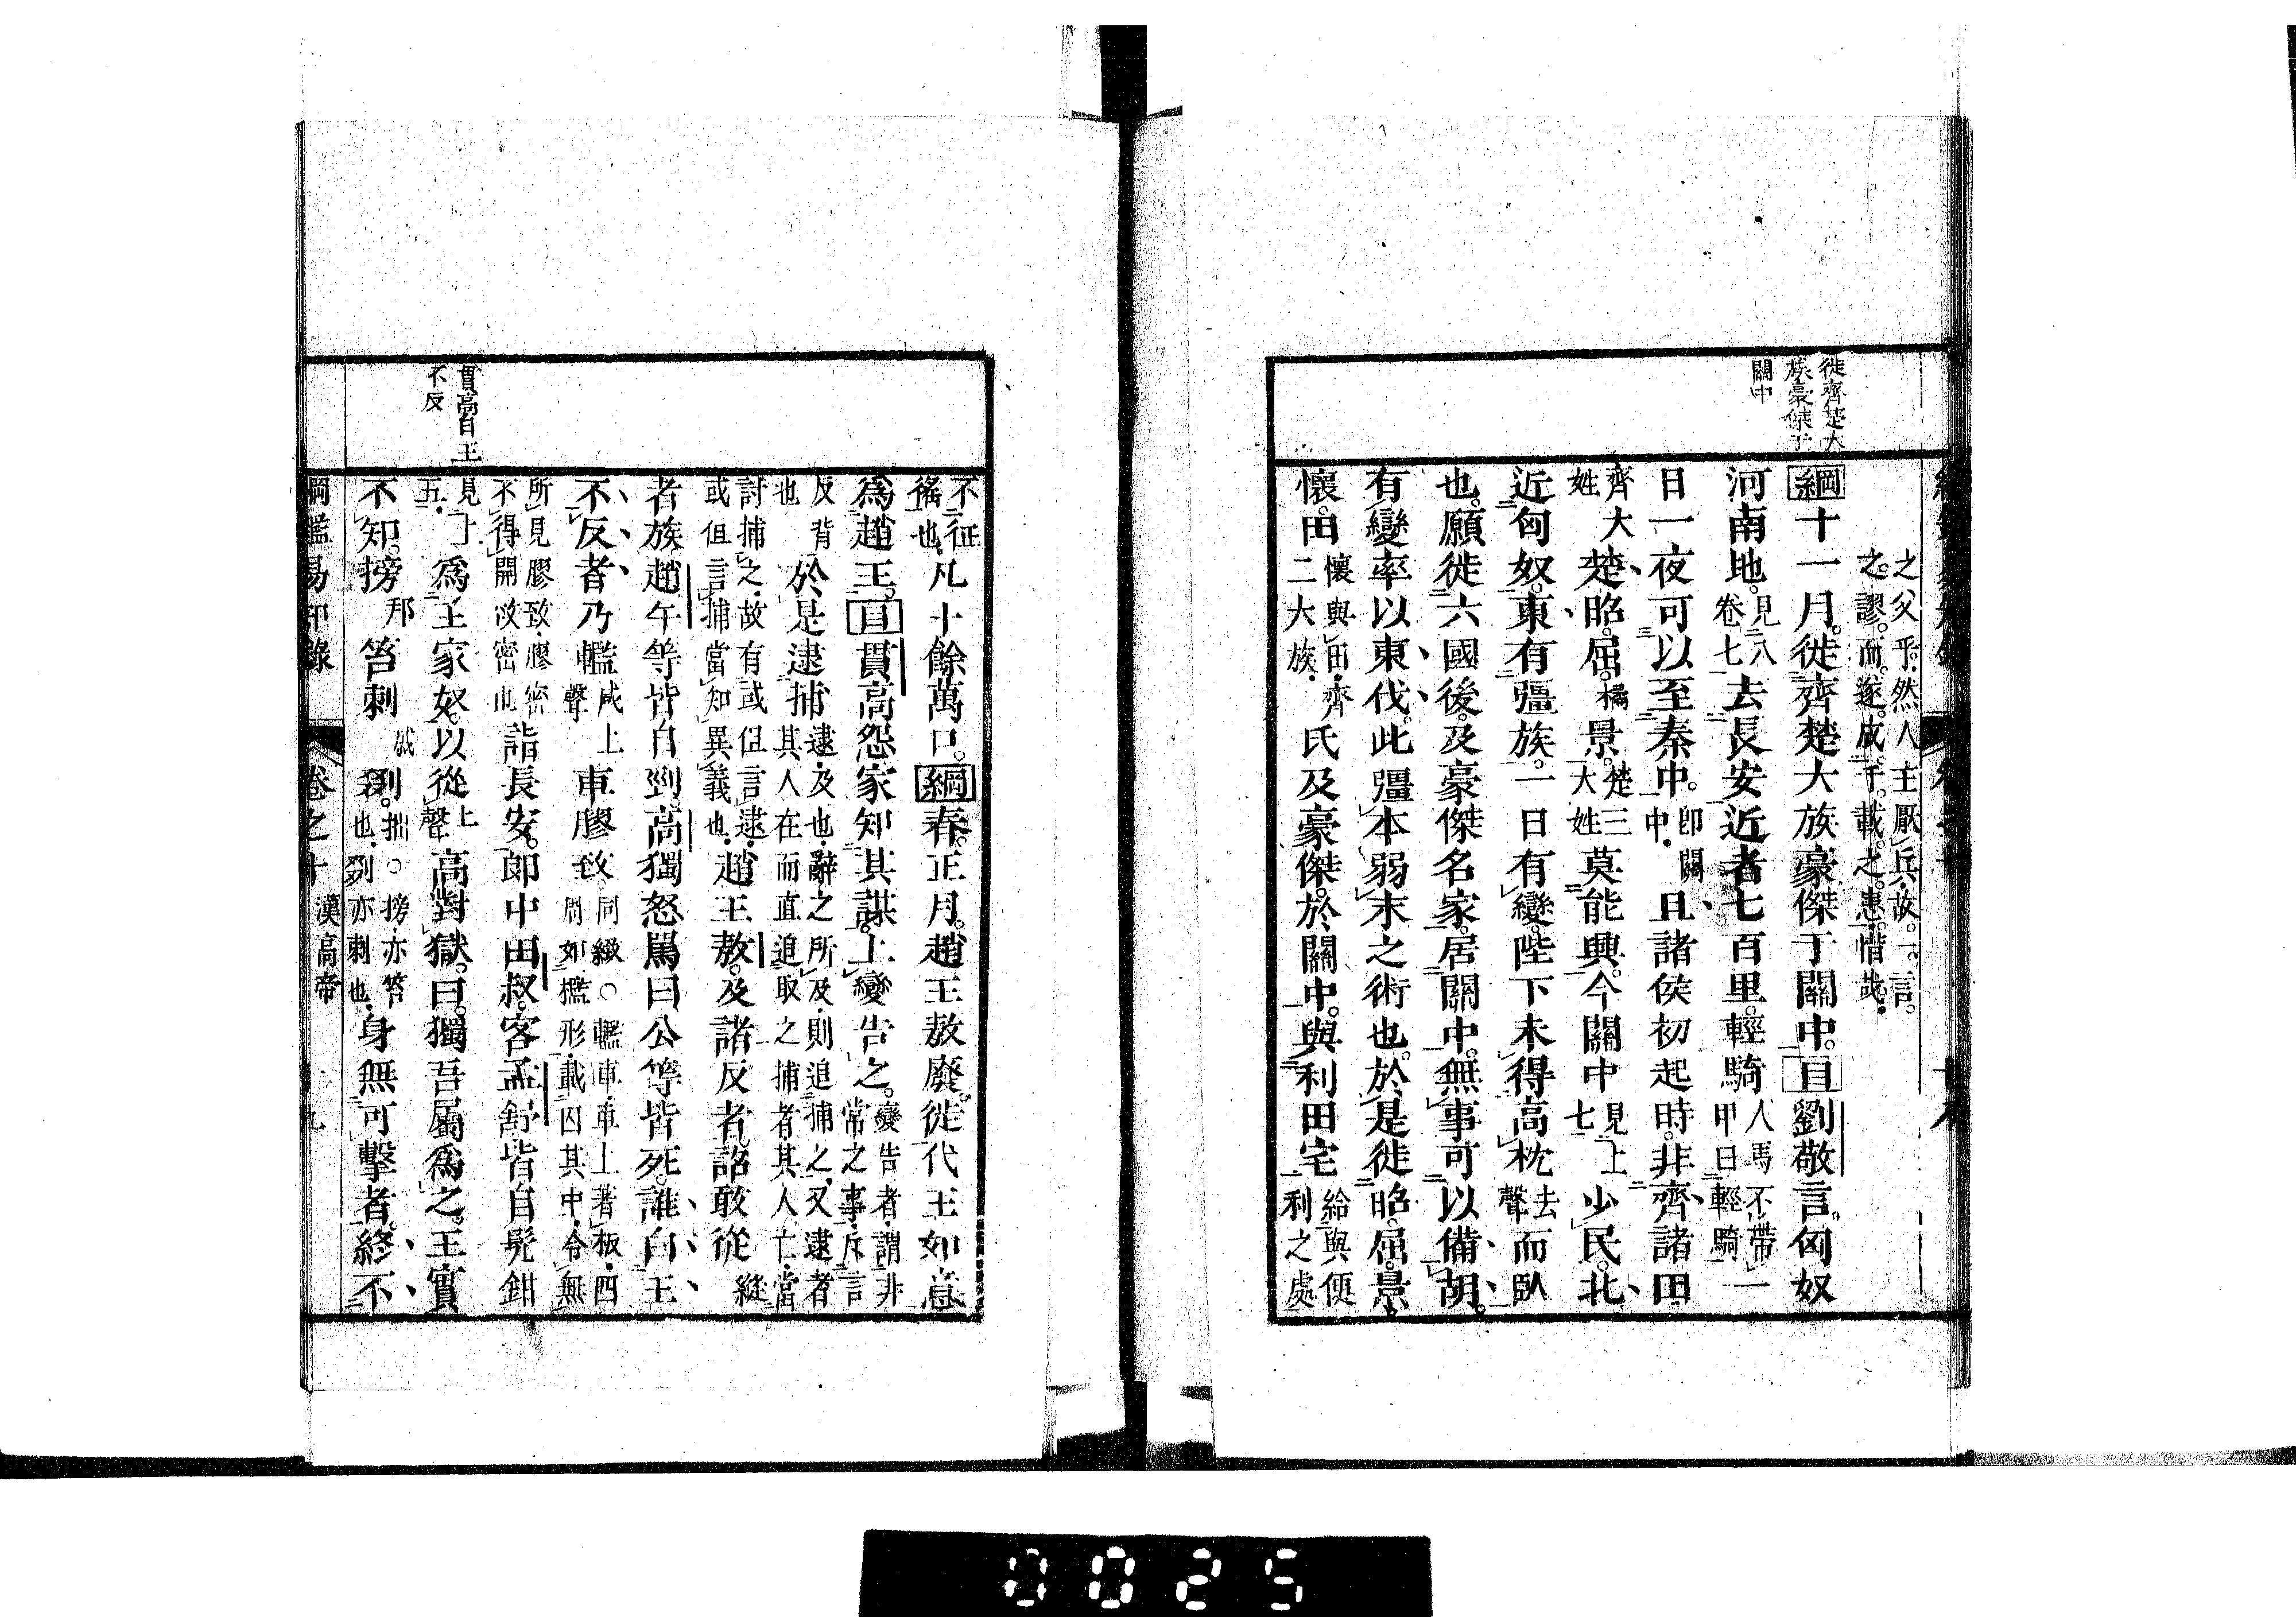 徙齊楚大
族豪傑于
關中
之父乎然人主厭兵故一言
之謬而遂成千載之患惜哉
綱十一月徙齊楚大族豪傑于關中目劉敬言匈奴
河南地見八卷七去長安近者七百里輕騎人馬不帶甲曰輕騎一
日一夜可以至秦中卽關中且諸侯初起時非齊諸田
齊大姓楚昭屈橘景楚三大姓莫能興今關中見上七少民北
近匈奴東有彊族一日有變陛下未得高枕去聲而臥
也願徙六國後及豪傑名家居關中無事可以備胡
有變率以東伐此彊本弱末之術也於是徙昭屈景
懷田懷與田齊二大族氏及豪傑於關中與利田宅給與便利之處
不征徭也凡十餘萬口綱春正月趙王敖廢徙代王如意
爲趙王目貫高怨家知其謀上變告之變告者謂非常之事斥言
反背也於是逮捕逮及也辭之所及則追捕之又逮者其人在而直追取之捕者其人亡當
討捕之故有或但言逮或但言捕當知異義也趙王敖及諸反者詔敢從縱
者族趙午等皆自剄高獨怒罵曰公等皆死誰白王
不反者乃轞咸上聲車膠致同緻○轞車車上著板四周如檻形載囚其中令無
所見膠致膠密不得開故密也詣長安郞中田叔客孟舒皆自髡鉗
見上五爲王家奴以從上聲高對獄曰獨吾屬爲之王實
不知搒邦笞刺 剟拙○搒亦笞也剟亦刺也身無可擊者終不
貫高白王
不反
綱鑑易知錄 卷之十 漢高帝 九